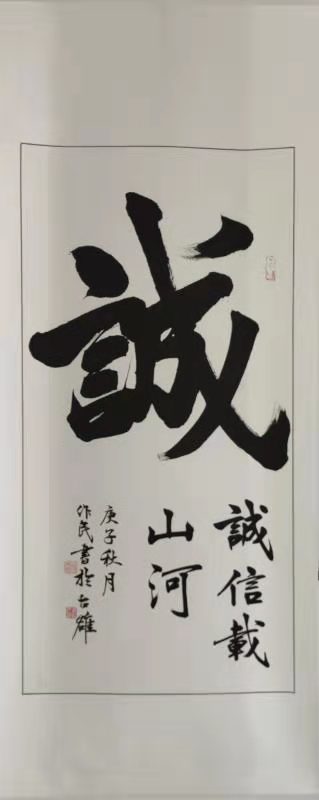 誠
誠信載
山河
庚子秋月
作民書於古雄